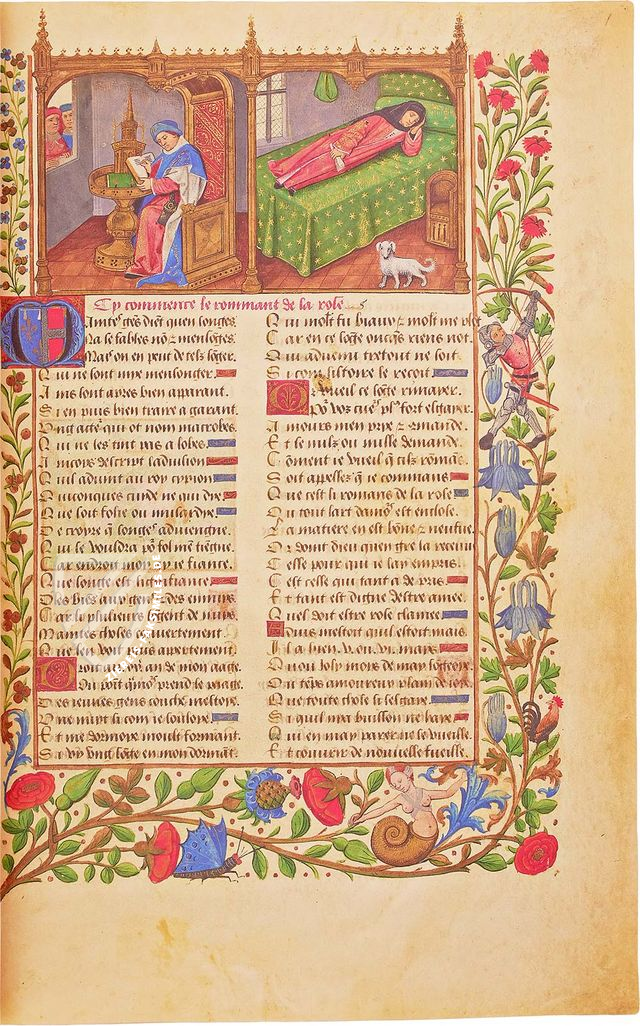 Cy commence le rommant de la rose
Maintes gēs diēt quen songes
Na se fables nō z mensonges
Mais on en peut de telz songer
Qui ne sont mie mensonger
Ains sont apres bien aparant
Si en puis bien traire a garant
Ung acteᵉ qui ot nom macrobes
Qui ne les tint pas a lobes
Aincois descript la
Qui aduint au roy cypion
Quiconques cuide ne qui die
Que soit folie ou musardie
De croyre q̄ songes aduiengne
Qui le vouldra poᵉ fol mē tiengne
Car endroit moy ay ie fiance
Que songe est signifiance
Des biēs aux gens z des ennuys
Car la plusieurs songent de nuys
Maintes choses couuertement
Que lē voit puis apertement
Ou point q̄moᵉs prend le peage
Des ieunes gens couche mestoye
Une nuyt si com ie souloye
Et me dormoye moult forment
Si vy ung sōge en mon dormāt
Qui moĺt fu biaux z moĺt mi plot
Car en ce songe oncq̄s riens not
Qui aduenu tretout ne soit
Si com listoire le recoit
Or vueil ce sōge rimayer
Poᵉ voz cueᵉs plᵘ fort esgayer
Amours men prie z cōmande
Et se nulz ou nulle demande
Cōment ie vueil q̄ cilz rōmās
Soit appellez q̄ ie commans
Que cest li romans de la rose
Ou tout lart damoᵉs est enclose
La matiere en est bōne z neufue
Or doint dieu quen gre la recoiue
Celle pour qui ie lay empris
Cest celle qui tant a de pris
Et tant est digne destre amee
Quel doit estre rose clamee
Aduis mestoit quil estoit mais
Il a bien v. ou vi. mays
Quou ioly moys de may songoye
Ou tēps amoureux plain de ioye
Que toute chose si sesgaye
Si quil na buisson ne haye
Qui en may parer ne se vueille
Et couurir de nouuelle fueille